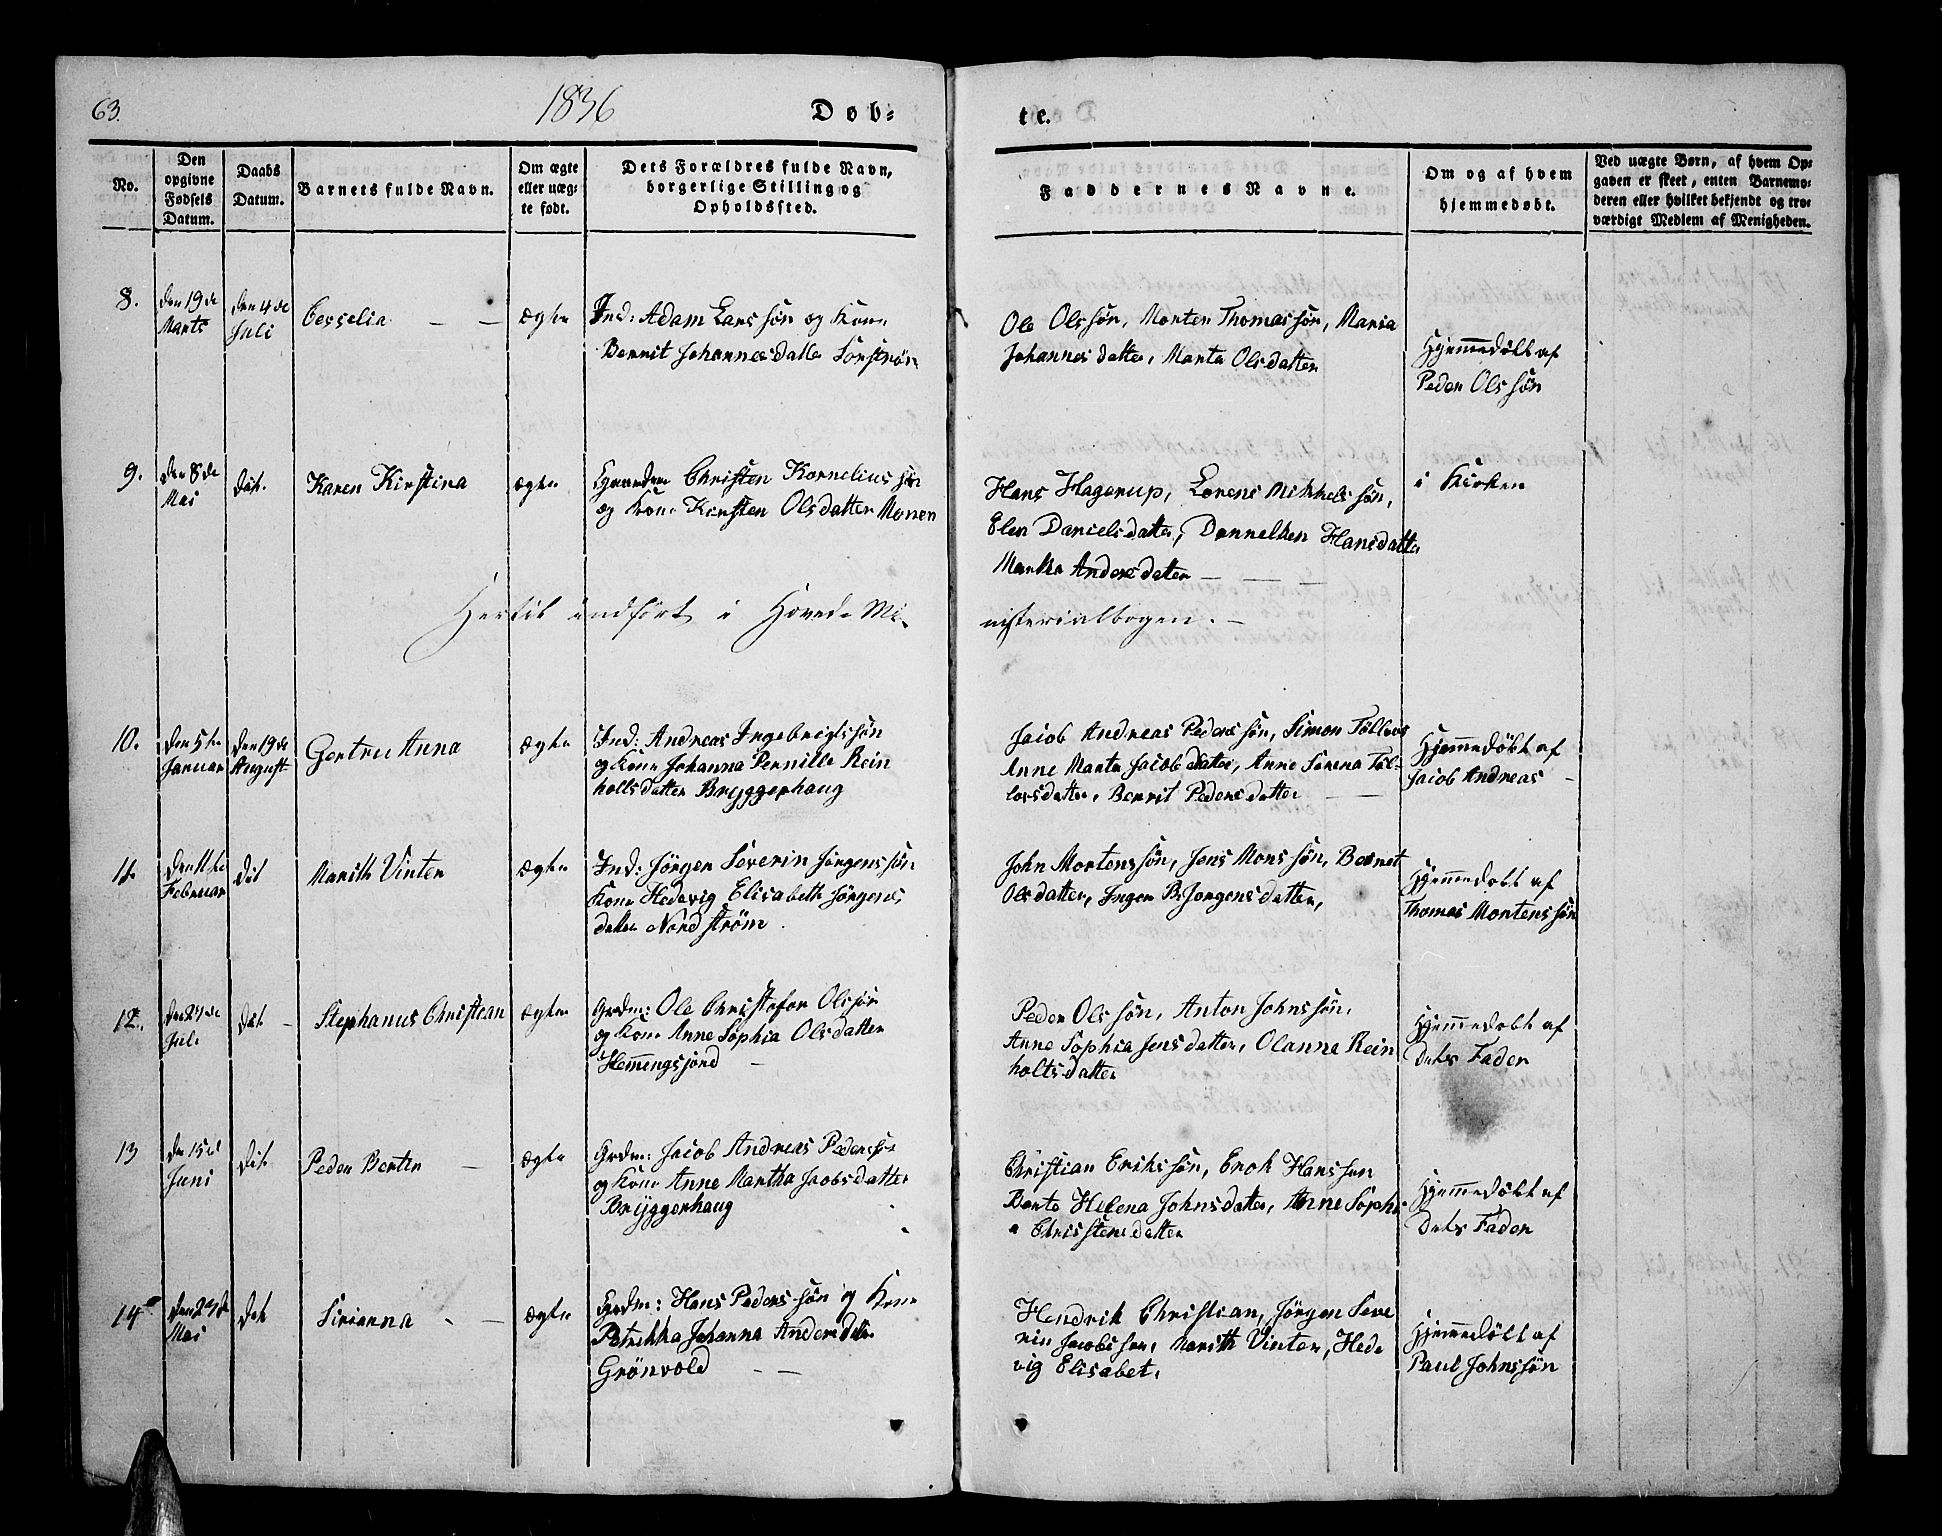 63.
1836
Døb-
te.
No.
Den
opgivne
Fødsels
Datum.
Daabs
Datum.
Barnets fulde Navn.
Om ægte
eller uæg-
te født.
Dets Forældres fulde Navn,
borgerlige Stilling og
Opholdssted.
Faddernes Navne.
Om og af hvem
hjemmedøbt.
Ved uægte Børn, af hvem Op-
gaven er skeet, enten Barnemo-
deren eller hvilket bekjendt og tro-
værdigt Medlem af Menigheden.
8.
den 19de
Marts
den 4de
Juli
Cesselia
ægte
Ind: Adam Larssøn og Kone
Berrit Johannesdatter
Ole Olssøn, Morten Thomassøn, Maria
Johannesdatter, Marta Olsdatter
Hjemmedøbt af
Peder Olssøn
9.
den 8de
Mai
dit.
Karen Kirstina
ægte
Christen Korneliussøn
og Kone Kirsten Olsdatter Monen
Hans Hagerup, Lorens Mikkelssøn,
Elen Danielsdatter, Dannelken Hansdatter
Martha Andersdatter
i Kirken
Hertil indført i Hoved-Mi-
nisterialbogen.
10.
den 5te
Januar
den 19de
August
Gertru Anna
ægte
Ind: Andreas Ingebrigtssøn
og Kone Johanna Pernille Rein
holtsdatter Bryggerhaug
Jacob Andreas Pederssøn, Simon Tøllevs
Anne Marte Jacobsdatter, Anne Serena Tøl-
levsdatter, Berrit Pedersdatter
Hjemmedøbt af
Jacob Andreas
11.
den 11te
Februar
dit
Marith Vinter
ægte
Ind: Jørgen Severin Jørgenssøn
Kone Hedevig Elisabeth Jørgens-
datter Nordstrøm
John Mortenssøn, Jens Monssøn, Bernet
Olsdatter, Inger B. Jørgensdatter,
Hjemmedøbt af
Thomas Mortenssøn
12.
Juli
dit
Stephanus Christian
ægte
Grdm: Ole Christofer Olssøn
og Kone Anne Sophia Olsdatter
Hemmingsjord
Peder Olssøn, Anton Johnssøn,
Anne Sophia Jensdatter, Olanna Rein
holtsdatter
Hjemmedøbt af
Dets Fader
13
den 15de
Juni
dit
Peder Berten
ægte
Grdm: Jacob Andreas Pederssøn
og Kone Anne Martha Jacobsdatter
Bryggerhaug
Christian Erikssøn, Enok Hanssen
Berte Helena Johnsdatter, Anne Sophi
a Christensdatter
Hjemmedøbt af
Dets Fader
14
Mai
dit
Sirianna
ægte
Grdm: Hans Pederssøn og Kone
Petrikka Johanna Andersdatter
Grønvold
Hendrik Christian, Jørgen Seve
rin Jacobssen, Marith Vinter, Hede
vig Elisabet.
Hjemmedøbt af
Paul Johnssøn